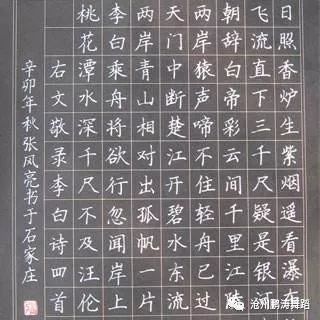 日照香炉生紫烟遥看瀑布
飞流直下三千尺疑是银河
朝辞白帝彩云间千里江陵
两岸猿声啼不住轻舟已过
天门中断楚江开碧水东流
两岸青山相对出孤帆一片
李白乘舟将欲行忽闻岸上
桃花潭水深千尺不及汪伦
右文敬录李白诗四首
辛卯年秋张风亮书于石家庄
沧州鹏涛舞蹈